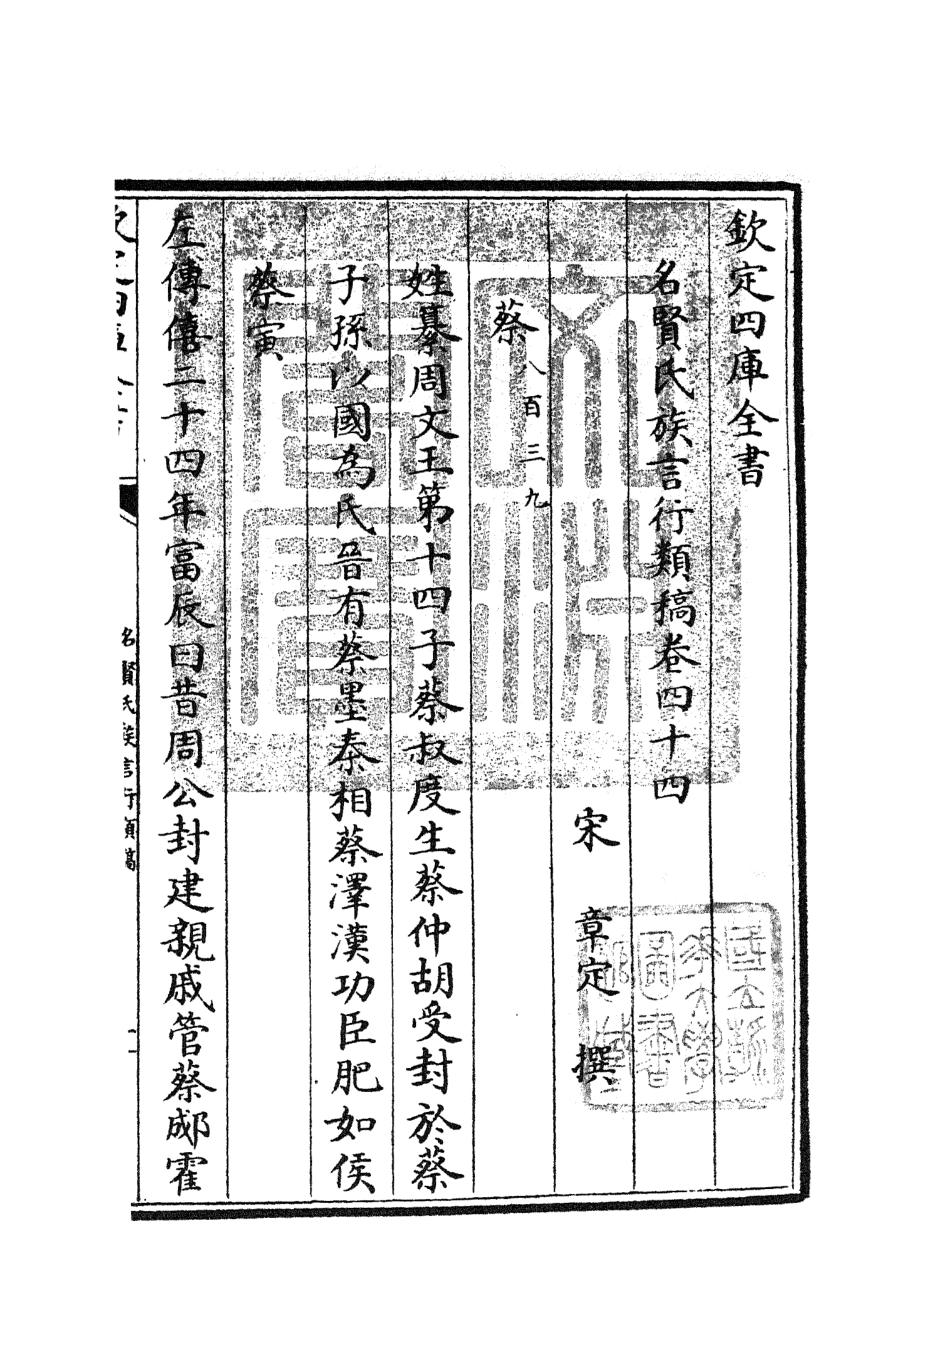 欽定四庫全書
名賢氏族言行類稿卷四十四
宋 章定 撰
蔡 八百三九
姓纂周文王第十四子蔡叔度生蔡仲胡受封於蔡
子孫以國為氏晉有蔡墨秦相蔡澤漢功臣肥如侯
蔡寅
左傳僖二十四年富辰曰昔周公封建親戚管蔡郕霍
名賢氏族言行類稿